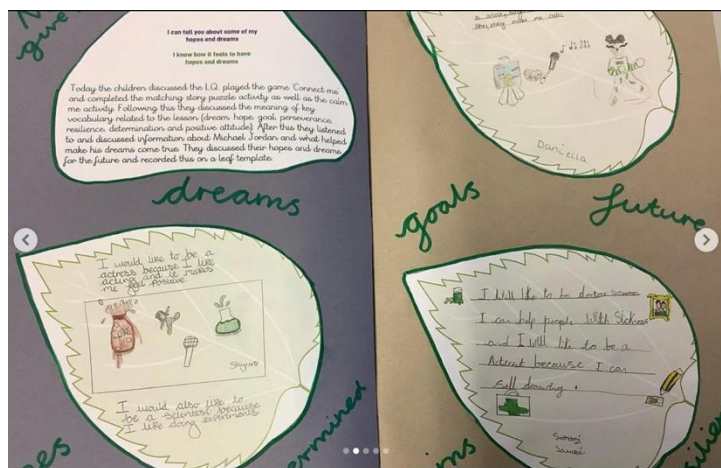 give
I can tell you about some of my
hopes and dreams
I know how it feels to have
hopes and dreams
Today the children discussed the LQ, played the game 'Connect me
and completed the matching story puzzle activity as well as the calm
me activity. Following this they discussed the meaning of key
vocabulary related to the lesson (dream, hope, goal, perseverance,
resilience, determination and positive attitude). After this they listened
to and discussed information about Michael Jordan and what helped
make his dreams come true. They discussed their hopes and dreams
for the future and recorded this on a leaf template.
dreams
I would like to be a
actress because I like
acting and it makes
me feel positive.
I would also like to
be a scientest because
I like doing expiriments.
ermined
Daniella
goals
future
I will like to be doctor
I can help people With Sickness
and I will like to be a
because I can
sell drawing.